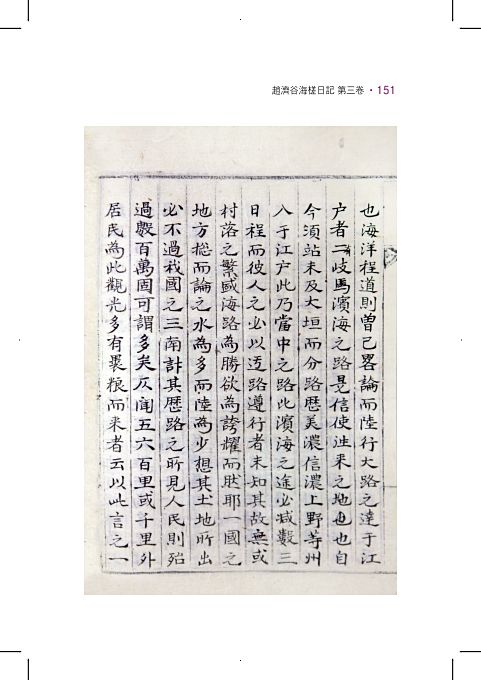 趙濟谷海槎日記 第三卷 · 151
也海洋程道則曾已畧論而陸行大路之達于江
户者二岐焉濱海之路是信使往来之地也也自
今須站未及大垣而分路歷美濃信濃上野等州
入于江户此乃當中之路比濱海之途必減數三
日程而彼人之必以迃路遵行者未知其故無或
村落之繁盛海路為勝欲為誇耀而然耶一國之
地方揔而論之水為多而陸為少想其土地所出
必不過我國之三南計其歷路之所見人民則殆
過數百萬固可謂多矣仄聞五六百里或千里外
居民為此觀光多有褁粮而来者云以此言之一